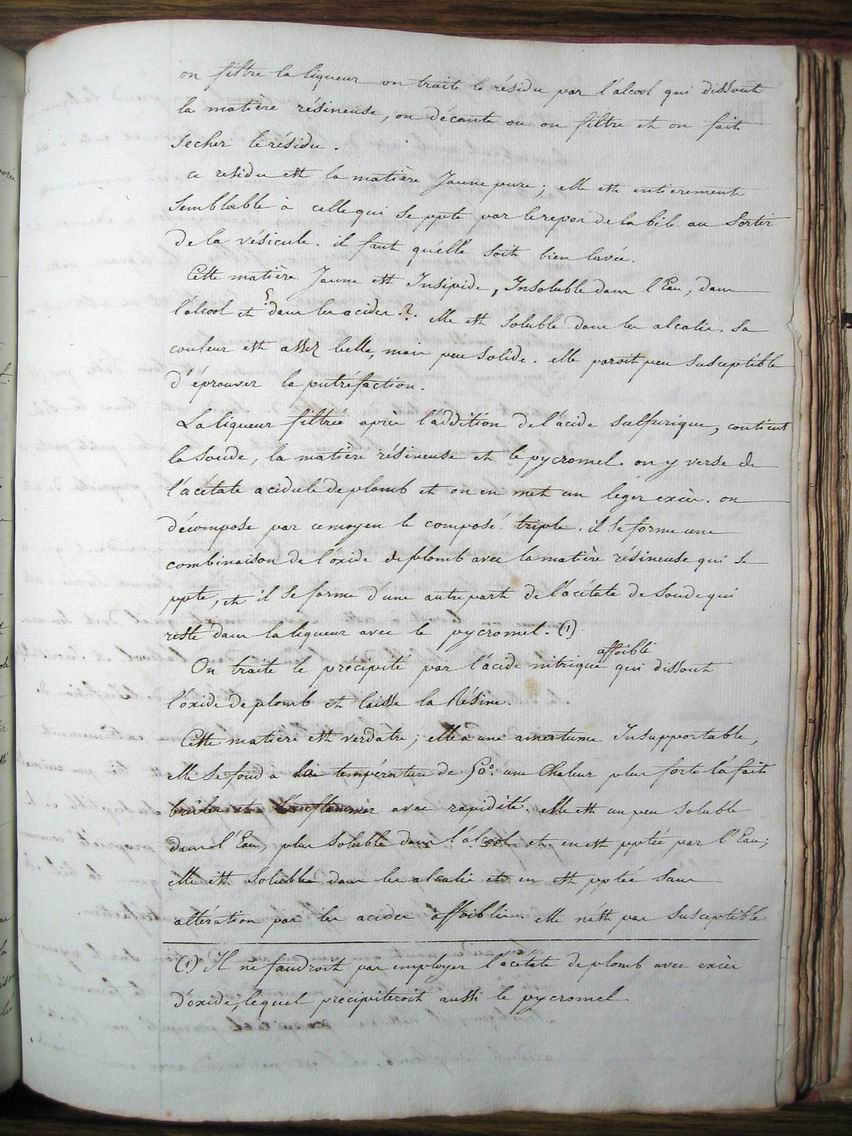 on filtre la liqueur on traite le résidu par l'alcool qui dissout
la matière résineuse, on décante ou on filtre et on fait
secher le résidu.
ce residu est la matière Jaune pure; elle est entierement
semblable à celle qui se ppte par le repos de la bile au sortir
de la vésicule. il faut qu'elle soit bien lavée.
Cette matière Jaune est Insipide, Insoluble dans l'Eau, dans
l'alcool et dans les acides ? elle est soluble dans les alcalis. Sa
couleur est assez belle, mais peu solide. elle paroit peu susceptible
d'éprouver la putréfaction.
La liqueur filtrée après l'addition de l'acide sulfurique, contient
la soude, la matière résineuse et le pycromel. on y verse de
l'acétate acidule de plomb et on en met un léger excès. on
décompose par ce moyen le composé triple. il se forme une
combinaison de l'oxide de plomb avec la matière résineuse qui se
ppte, et il se forme d'une autre part de l'acétate de soude qui
reste dans la liqueur avec le pycromel. (1)
affoibli
On traite le précipité par l'acide nitrique qui dissout
l'oxide de plomb et laisse la Résine.
Cette matiere est verdâtre; elle a une amertume Insupportable,
elle se fond à température de 50°: une chaleur plus forte la fait
bruler et l'enflammer avec rapidité. elle est un peu soluble
dans l'Eau, plus soluble dans l'alcool et en est pptée par l'Eau;
elle est soluble dans les alcalis et en est pptée sans
altération par les acides affoiblis. elle n'est pas susceptible
(1) Il ne faudroit pas employer l'acétate de plomb avec excès
d'oxide, lequel precipiteroit aussi le pycromel